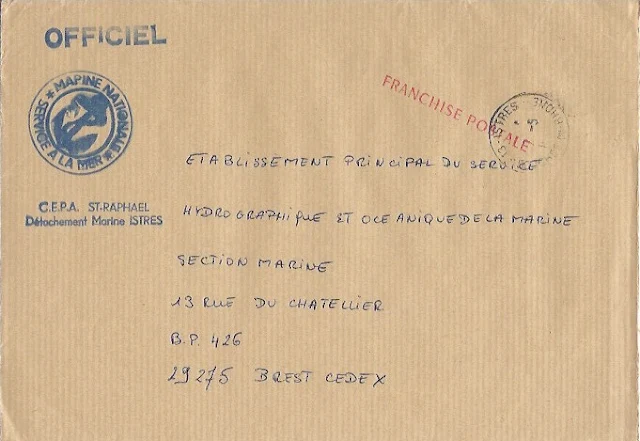 OFFICIEL
FRANCHISE POSTALE
★ MARINE NATIONALE ★
SERVICE A LA MER
C.E.P.A. ST-RAPHAEL
Détachement Marine ISTRES
ETABLISSEMENT PRINCIPAL DU SERVICE
HYDROGRAPHIQUE ET OCEANIQUE DE LA MARINE
SECTION MARINE
13 RUE DU CHATELLIER
B.P. 426
29275 BREST CEDEX